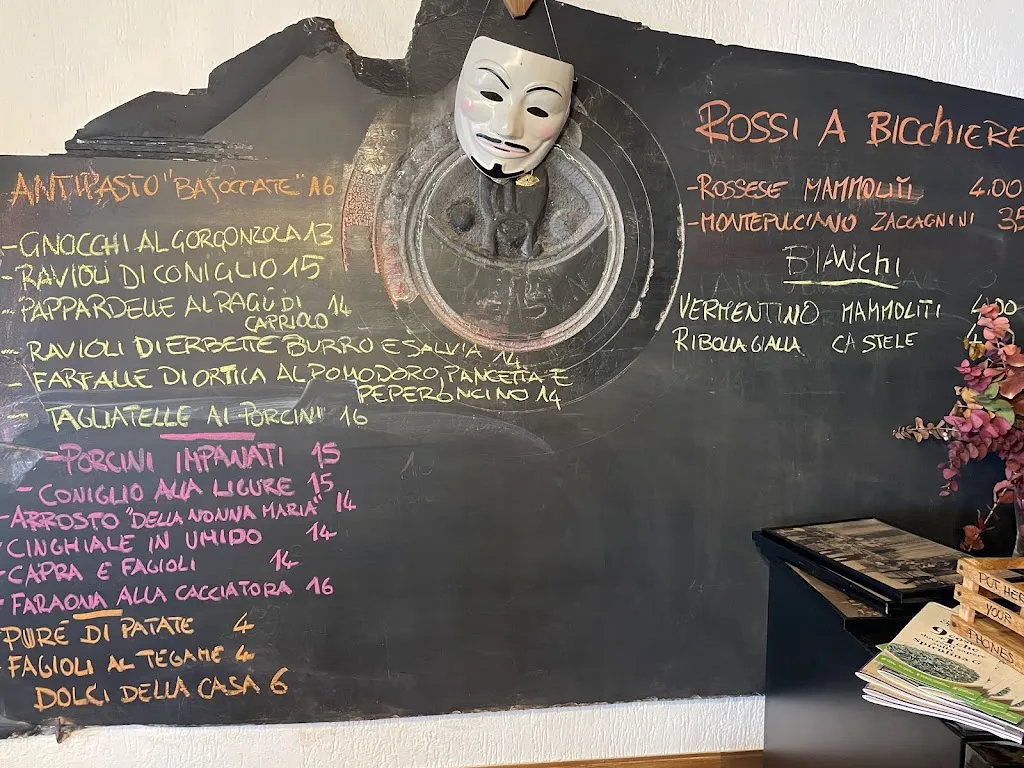 ANTIPASTO "BAJOCCATE" 16
- GNOCCHI AL GORGONZOLA 13
- RAVIOLI DI CONIGLIO 15
- PAPPARDELLE AL RAGÚ DI 14
CAPRIOLO
- RAVIOLI DI ERBETTE BURRO E SALVIA 14
- FARFALLE DI ORTICA AL POMODORO, PANCETTA E
PEPERONCINO 14
- TAGLIATELLE AI PORCINI 16
- PORCINI IMPANATI 15
- CONIGLIO ALLA LIGURE 15
- ARROSTO "DELLA NONNA MARIA" 14
- CINGHIALE IN UMIDO 14
- CAPRA E FAGIOLI 14
- FARAONA ALLA CACCIATORA 16
PURÉ DI PATATE 4
- FAGIOLI AL TEGAME 4
DOLCI DELLA CASA 6
ROSSI A BICCHIERE
- ROSSESE MAMMOLITI 4,00
- MONTEPULCIANO ZACCAGNINI 3,5
BIANCHI
VERMENTINO MAMMOLITI 4,00
RIBOLLA GIALLA CASTELE
PUT HERE
YOUR
PHONES